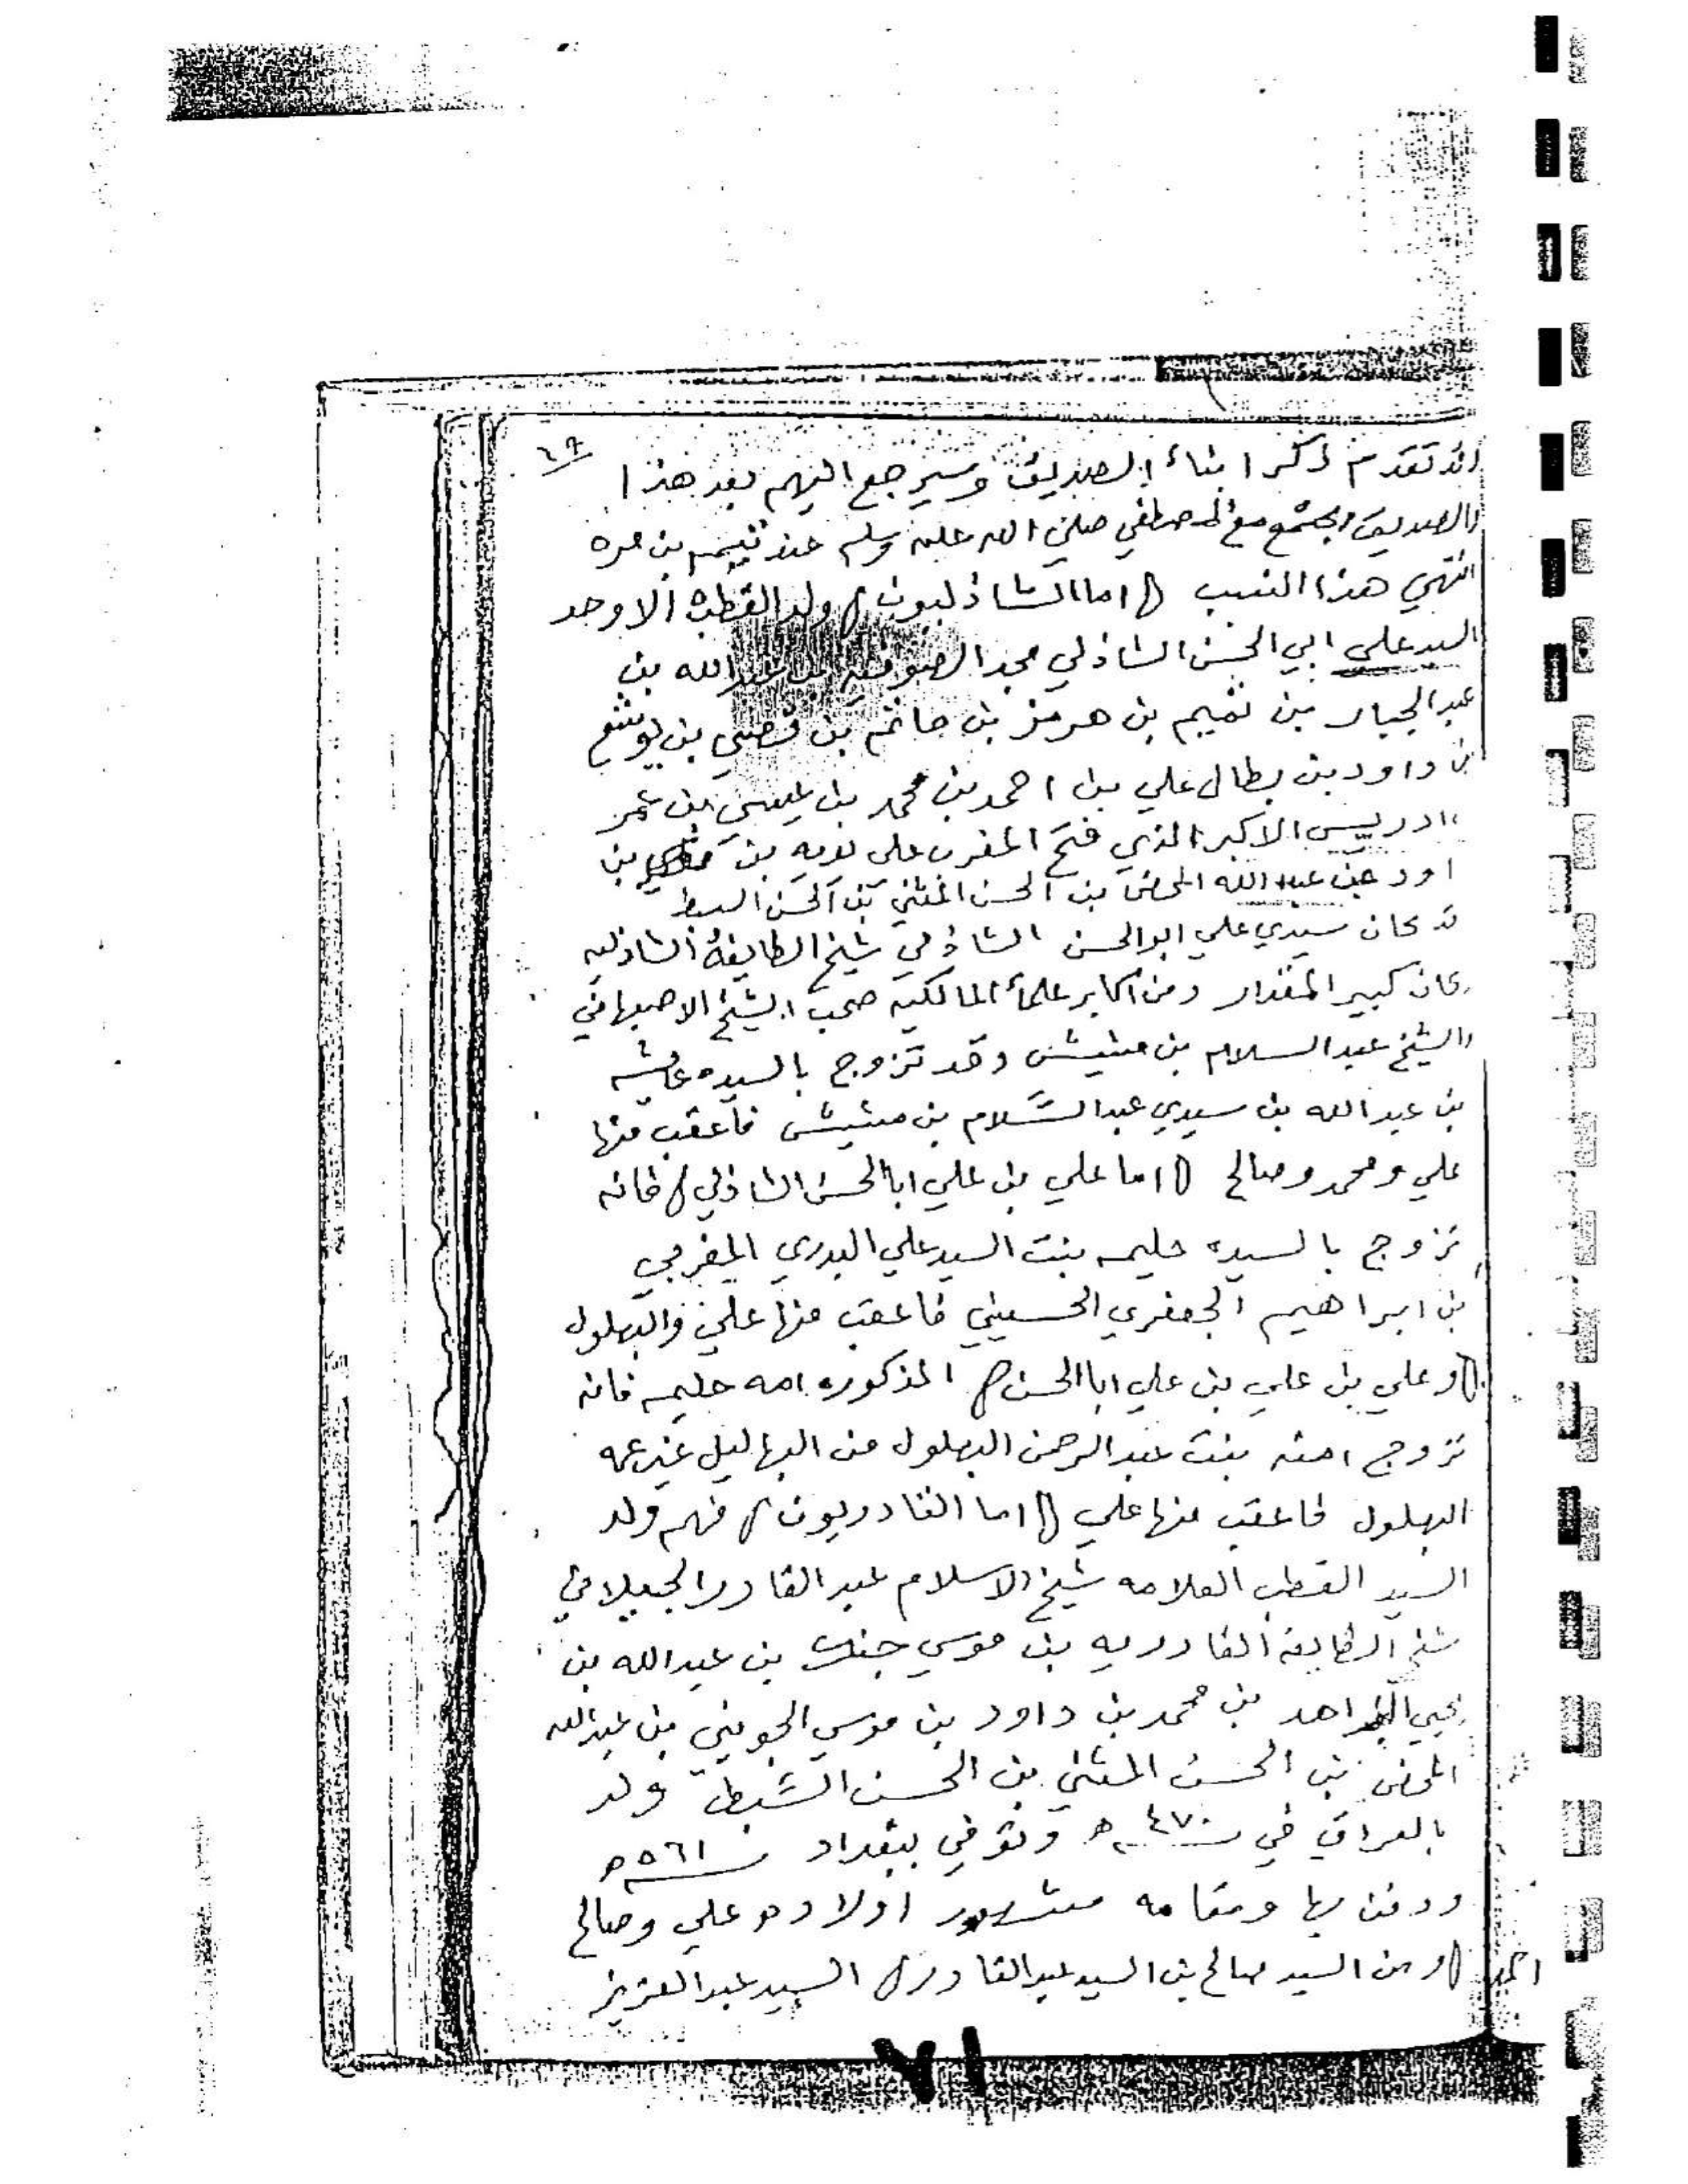 ٦٩
قد تقدم ذكر ابناء الصديق وسيرجع اليهم بعد هذا
والصديق اجتمع مع المصطفي صلي الله عليه وسلم عند تيم بن مره
انتهي هذا النسب () اما الشاذليون () ولد القطب الاوحد
السيد علي ابي الحسن الشاذلي مجد الصوفيه بن عبدالله بن
عبدالجبار بن تميم بن هرمز بن حاتم بن قصي بن يوشع
بن داود بن بطال علي بن احمد بن محمد بن عيسي بن عمر
ادريس الاكبر الذي فتح المغرب علي يديه بن
عبدالله المحض بن الحسن المثني بن الحسن السبط
قد كان سيدي علي ابوالحسن الشاذلي شيخ الطايفة الشاذليه
كان كبير المقدار ومن اكابر علماء المالكيه صحب الشيخ الاصبهاني
والشيخ عبدالسلام بن مشيش وقد تزوج بالسيده عايشه
بن عبدالله بن سيدي عبدالسلام بن مشيش فاعقب منها
علي ومحمد وصالح () اما علي بن علي ابا الحسن الشاذلي () فانه
تزوج بالسيده حليمه بنت السيد علي البدري المغربي
بن ابراهيم الجعفري الحسيني فاعقب منها علي والبهلول
() وعلي بن علي بن علي ابا الحسن () المذكوره امه حليمه فانه
تزوج امنه بنت عبدالرحمن البهلول من البهاليل غير عمه
البهلول فاعقب منها علي () اما القادريون () فهم ولد
السيد القطب العلامه شيخ الاسلام عبدالقادر الجيلاني
شيخ الطايفة القادريه بن موسي جنك بن عبدالله بن
يحيي الزاهد بن محمد بن داود بن موسي الجويني بن عبدالله
المحض بن الحسن المثني بن الحسن السبط ولد
بالعراق في سنة ٤٧٠ه وتوفي ببغداد سنة ٥٦١ه
ودفن بها ومقامه مشهور اولاده علي وصالح
() ومن السيد صالح بن السيد عبدالقادر () السيد عبدالعزيز
٧١